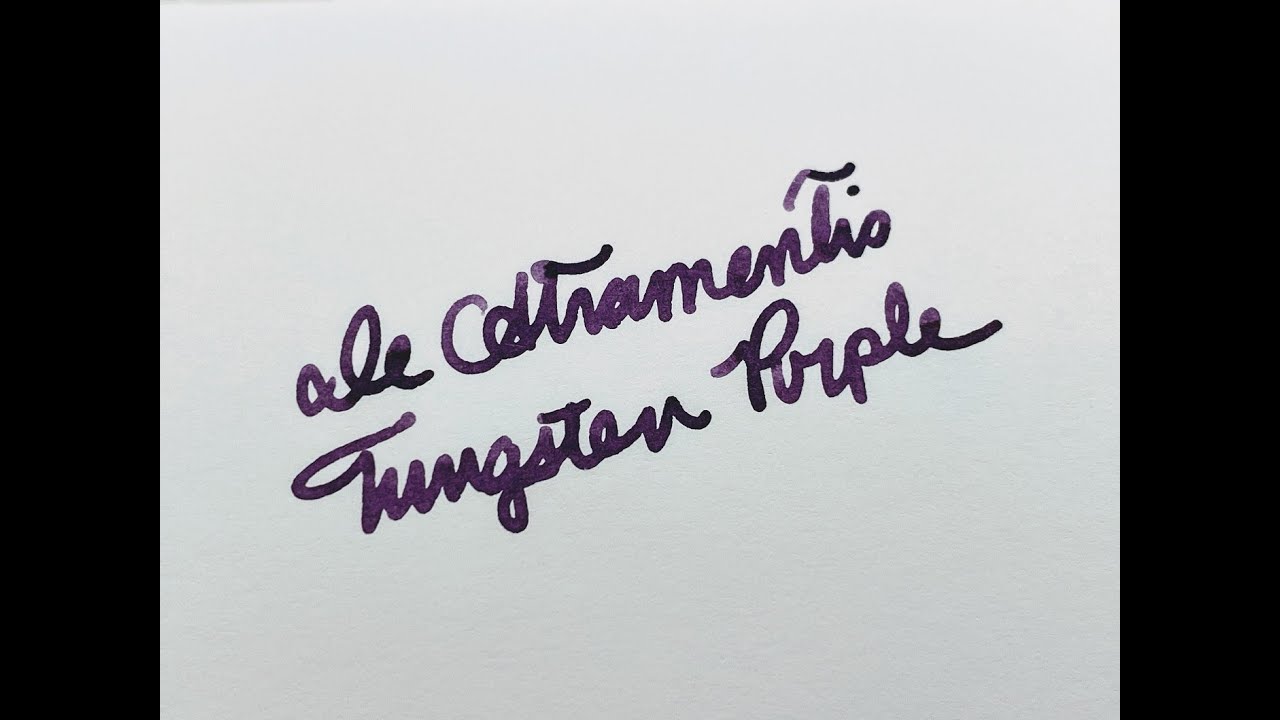 de Atramentis
Tungsten Purple